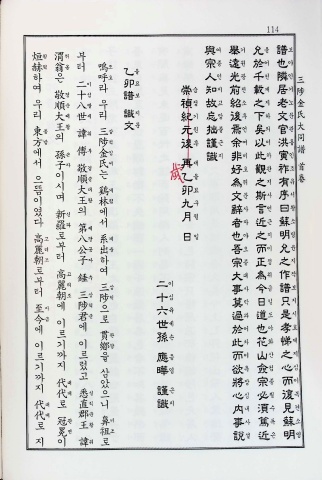 114
三陟金氏大同譜 首卷
譜也隣居老文官洪寅祐有序曰蘇明允之作譜只是孝悌之心而復見蘇明
允於千載之下矣以此觀之斯言近之而正為今日道也花山僉宗必須篤近
擧遠光前紹後斋余非好為文辭者也吾宗大事莫過於此而欲將心內事說
與宗人知故忘拙謹識
崇禎紀元後再乙卯九月 日
歲
二十六世孫 應曄 謹識
乙卯譜 識文
嗚呼라 우리 三陟金氏는 鷄林에서 系出하여 三陟으로 貫鄕을 삼았으니 鼻祖로
부터 二十八世 諱 傳 敬順大王의 第八公子 錘 三陟君에 이르렀고 悉直郡王 諱
渭翁은 敬順大王의 孫子이시며 新羅로부터 高麗朝에 이르기까지 代代로 冠冕이
烜赫하여 우리 東方에서 으뜸이였다 高麗朝로부터 至今에 이르기까지 代代로 지